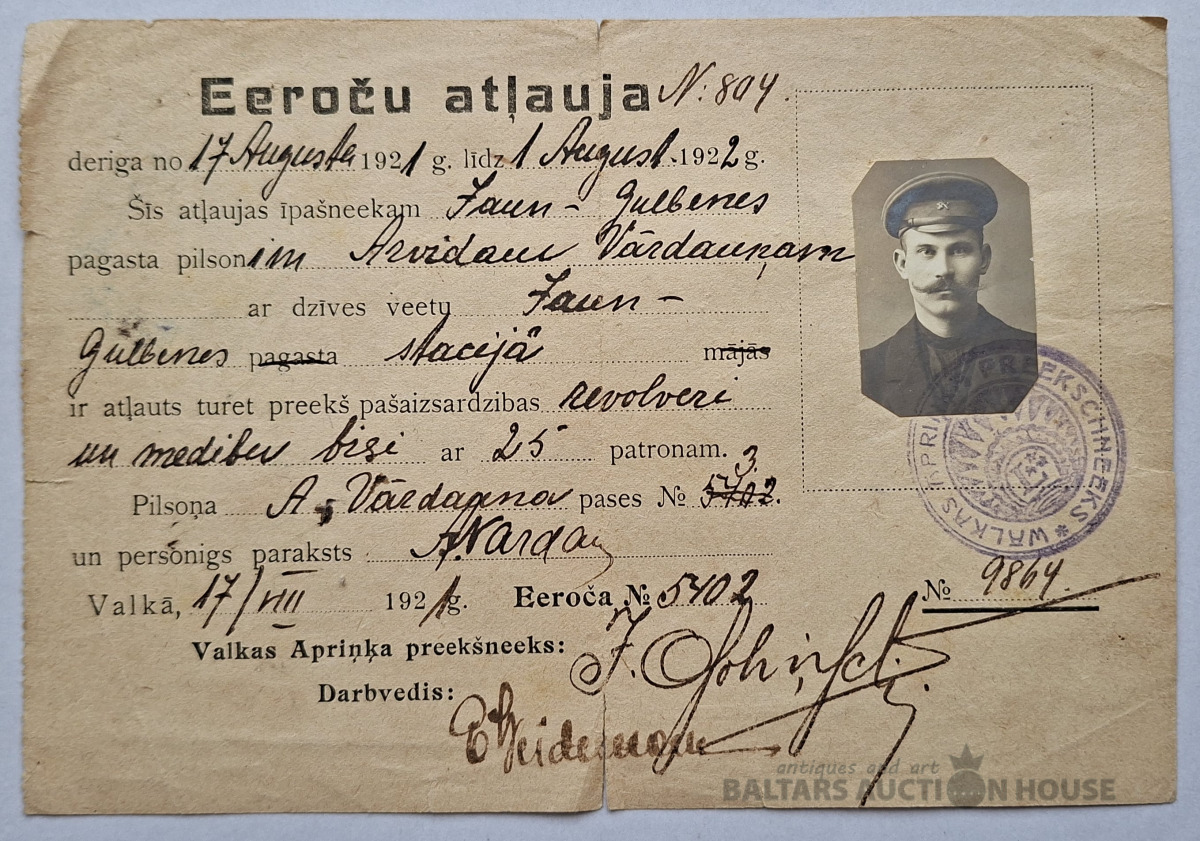 Eeroču atļauja N: 804.
deriga no 17 Augusta 1921 g. līdz 1 August. 1922 g.
Šīs atļaujas īpašneekam Jaun- Gulbenes
pagasta pilsonim Arvidam Vārdauņam
ar dzīves veetu Jaun-
Gulbenes pagasta stacijā mājās
ir atļauts turet preekš pašaizsardzibas revolveri
un medibu bisi ar 25 patronam.
3
Pilsoņa A. Vārdauna pases № 5702.
un personigs paraksts A. Varda
Valkā, 17/VIII 1921g. Eeroča № 5402
№ 9864
Valkas Apriņķa preekšneeks:
Darbvedis:
WALKAS APRIŅĶA PREEKSCHNEEKS *
antiques and art
BALTARS AUCTION HOUSE